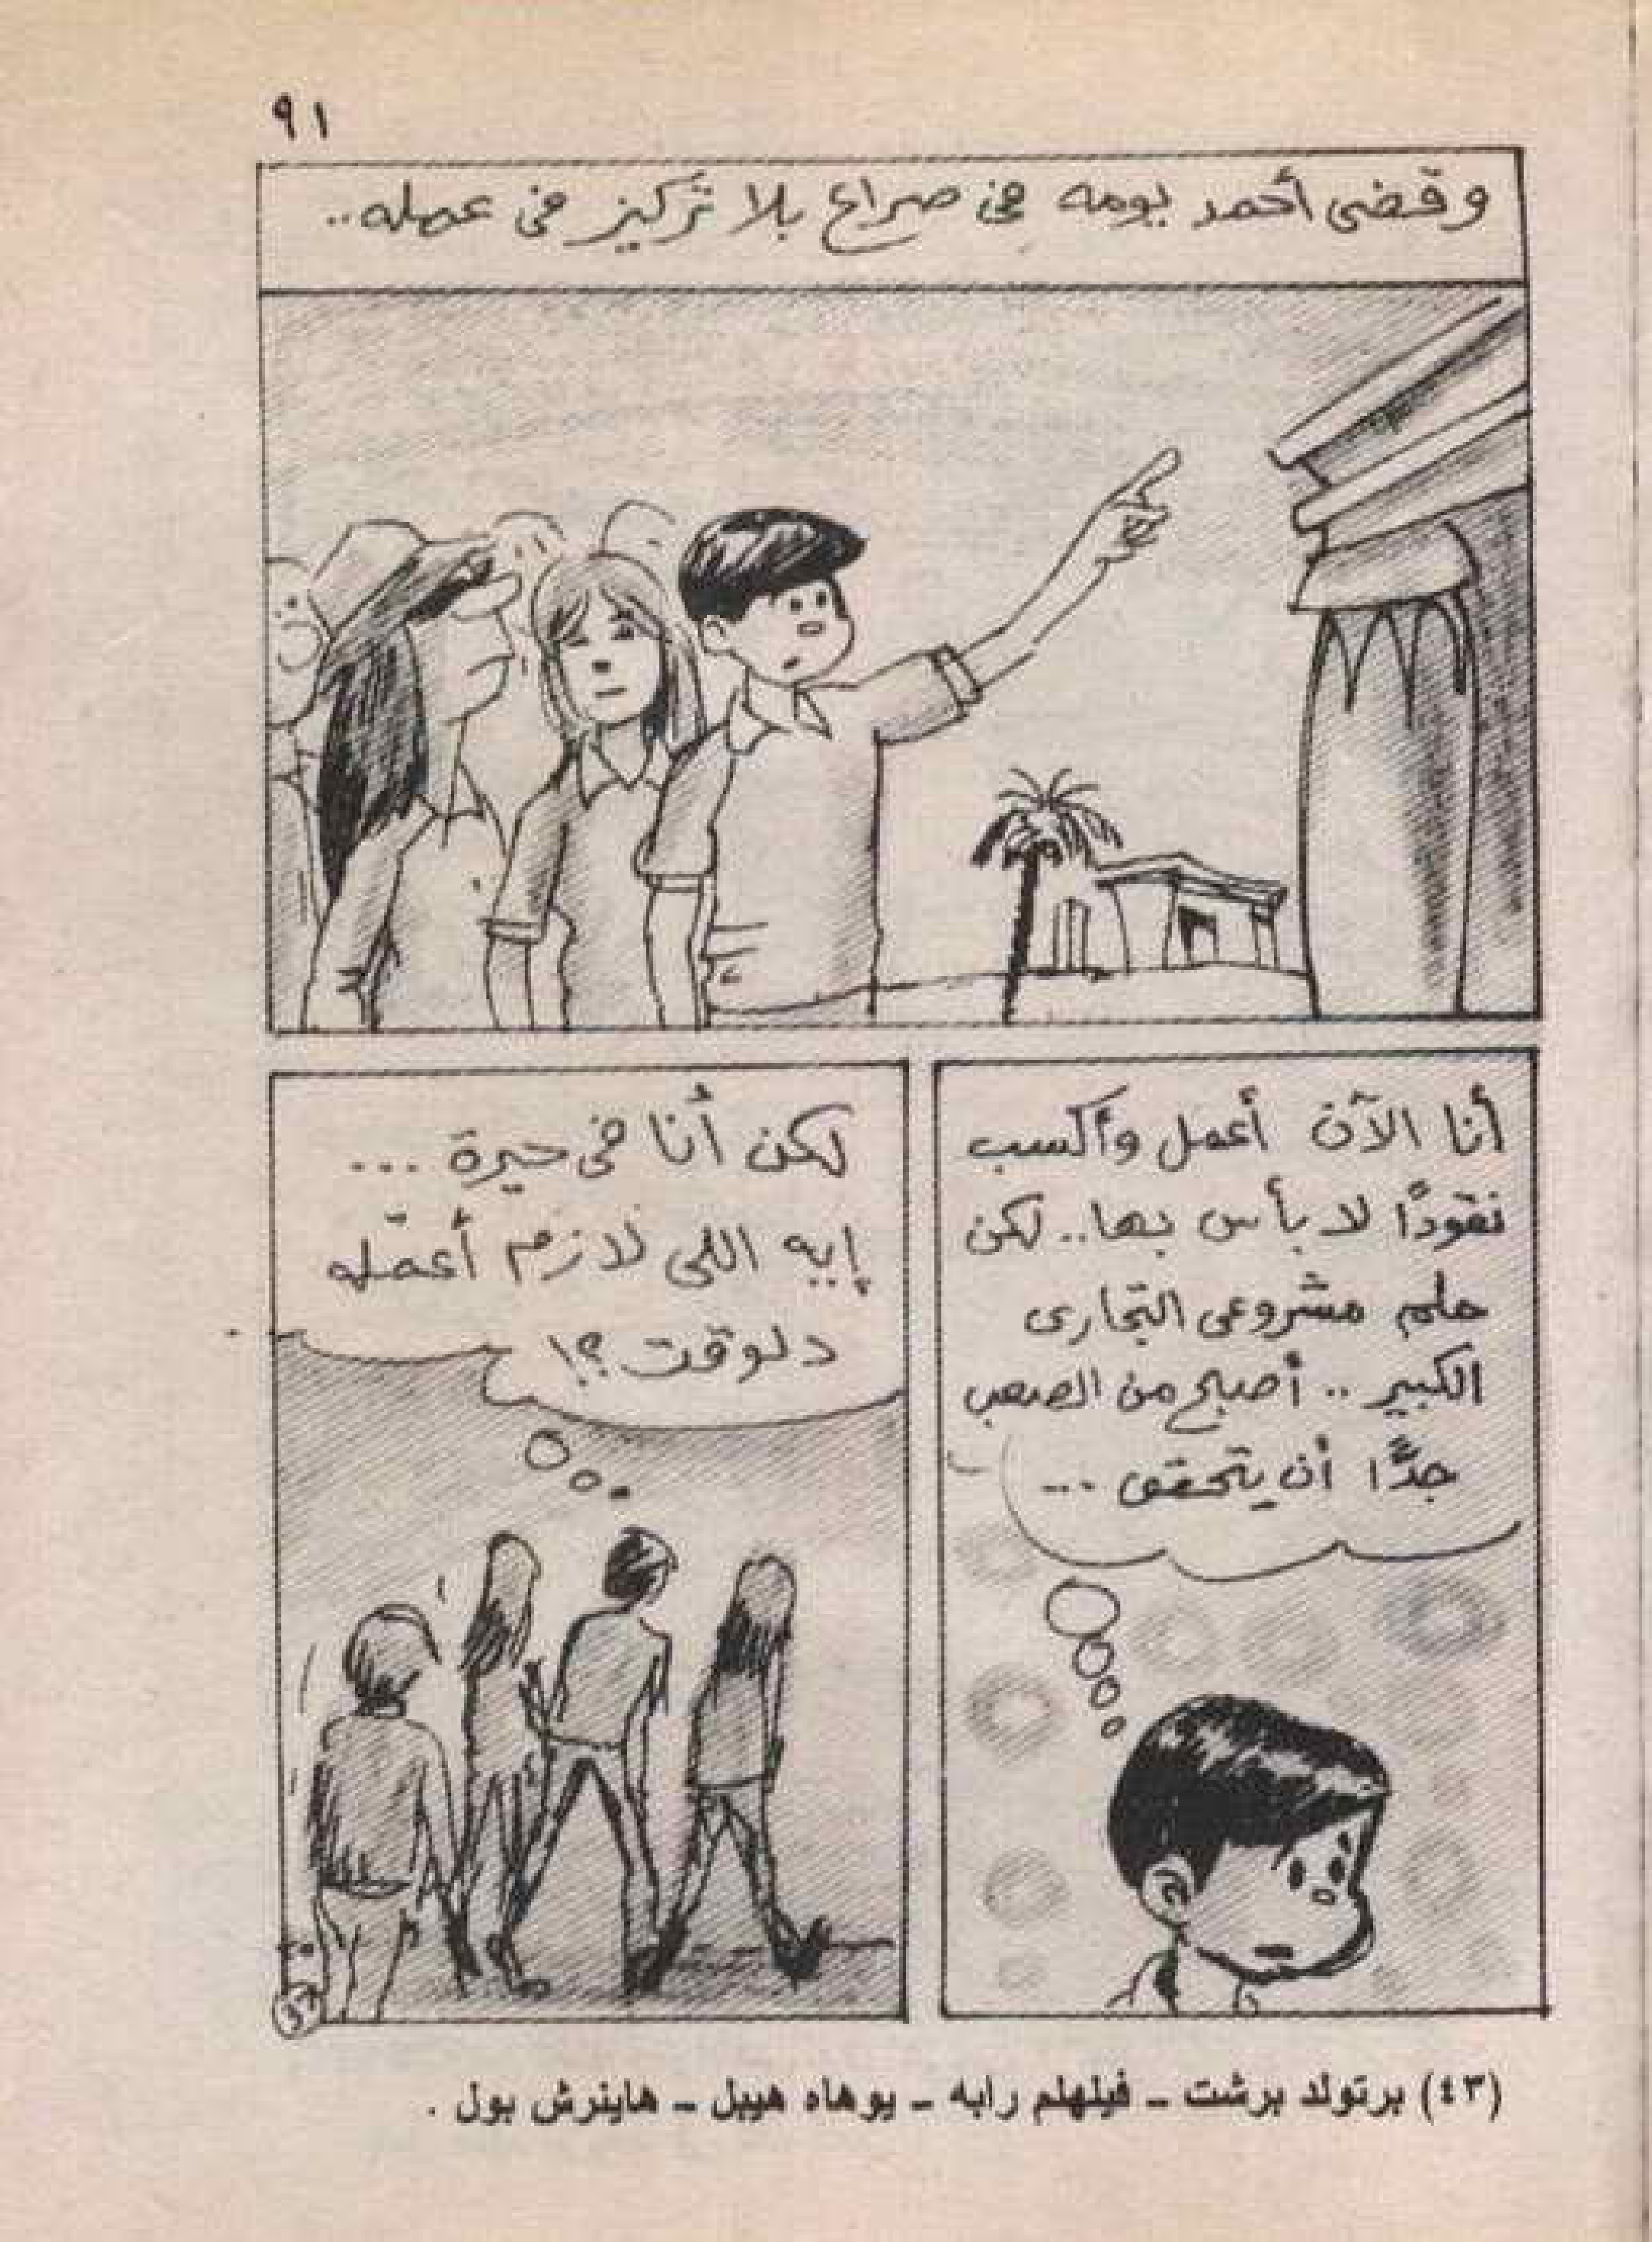 ٩١
وقضى أحمد يومه فى صراع بلا تركيز فى عمله..
أنا الآن أعمل وأكسب
نقودًا لا بأس بها.. لكن
حلم مشروعى التجارى
الكبير .. أصبح من الصعب
جدًّا أن يتحقق ...
لكن أنا فى حيرة ...
إيه اللى لازم أعمله
دلوقت ؟!
(٤٣) برتولد برشت ـ فيلهلم رابه ـ يوهاه هيبل ـ هاينرش بول .